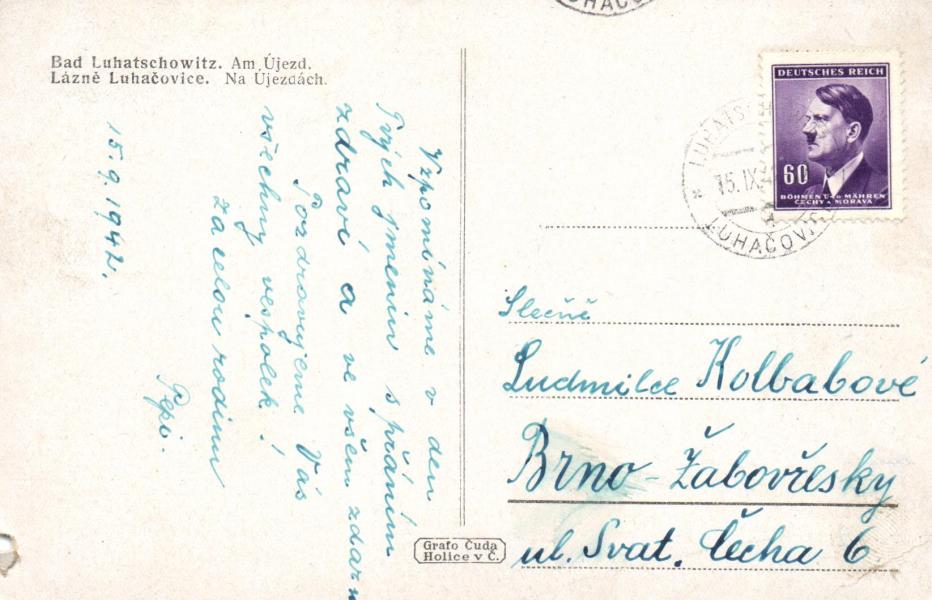 Bad Luhatschowitz. Am Újezd.
Lázně Luhačovice. Na Újezdách.
15.9.1942.
Vzpomínáme v den
Tvých jmenin s přáním
zdraví a ve všem zdaru
Pozdravujeme Vás
všechny vespolek!
Za celou rodinu
Pepi.
DEUTSCHES REICH
60
BÖHMEN U. MÄHREN
ČECHY A MORAVA
15.IX.
LUHAČOV
Slečně
Ludmilce Kolbabové
Brno-Žabovřesky
ul. Svat. Čecha 6
Grafo Čuda
Holice v Č.